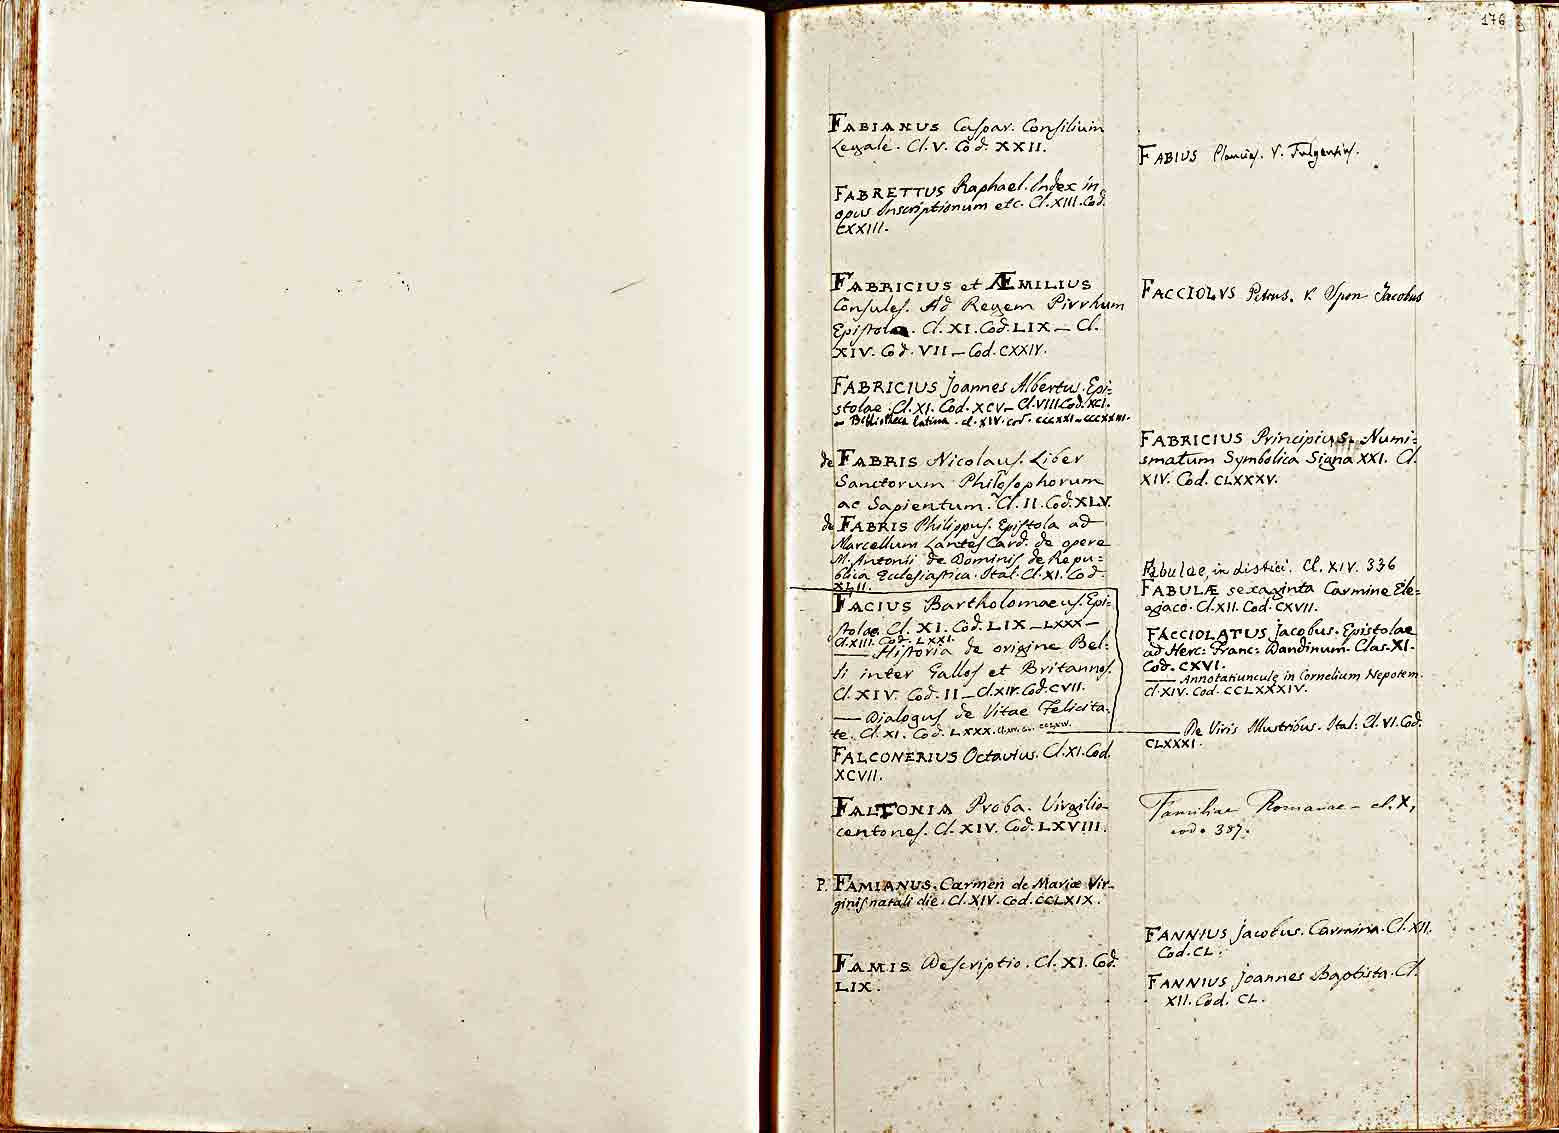 176
FABIANUS Caspar. Consilium
Legale. Cl. V. Cod. XXII.
FABRETTUS Raphael. Index in
opus Inscriptionum etc. Cl. XIII. Cod.
CXXIII.
FABRICIUS et ÆMILIUS
Consules. Ad Regem Pirrhum
Epistola. Cl. XI. Cod. LIX — Cl.
XIV. Cod. VII — Cod. CXXIV.
FABRICIUS Joannes Albertus. Epi=
stolae. Cl. XI. Cod. XCV — Cl. VIII. Cod. XCI.
— Bibliotheca latina. cl. XIV. cod.
de FABRIS Nicolaus. Liber
Sanctorum Philosophorum
ac Sapientum. Cl. II. Cod. XLV.
de FABRIS Philippus. Epistola ad
Marcellum Lantes Card. de opere
M. Antonii de Dominis de Repu=
blica Ecclesiastica. Ital. Cl. XI. Cod.
XLII.
FACIUS Bartholomaeus. Epi=
stolae. Cl. XI. Cod. LIX — LXXX —
Cl. XIII. Cod. LXXI.
— Historia de origine Bel=
li inter Gallos et Britannos.
Cl. XIV. Cod. II — Cl. XIV. Cod. CVII.
— Dialogus de Vitae Felicita=
te. Cl. XI. Cod. LXXX.
FALCONERIUS Octavius. Cl. XI. Cod.
XCVII.
FALTONIA Proba. Virgilio-
centones. Cl. XIV. Cod. LXVIII.
P. FAMIANUS. Carmen de Mariæ Vir-
ginis natali die. Cl. XIV. Cod. CCLXIX.
FAMIS Descriptio. Cl. XI. Cod.
LIX.
FABIUS Plancias. V. Fulgentius.
FACCIOLUS Petrus. V. Spon Jacobus
FABRICIUS Principius. Numi=
smatum Symbolica Signa XXI. Cl.
XIV. Cod. CLXXXV.
Fabulae in distici. Cl. XIV. 336
FABULÆ sexaginta Carmine Ele=
giaco. Cl. XII. Cod. CXVII.
FACCIOLATUS Jacobus. Epistolae
ad Herc: Franc: Dandinum. Clas. XI.
Cod. CXVI.
— Annotatiunculę in Cornelium Nepotem.
Cl. XIV. Cod. CCLXXXIV.
— De Viris Illustribus. Ital: Cl. VI. Cod.
CLXXXI.
Familiae Romanae — cl. X,
cod. 387.
FANNIUS Jacobus. Carmina. Cl. XII.
Cod. CL.
FANNIUS Joannes Baptista. Cl.
XII. Cod. CL.